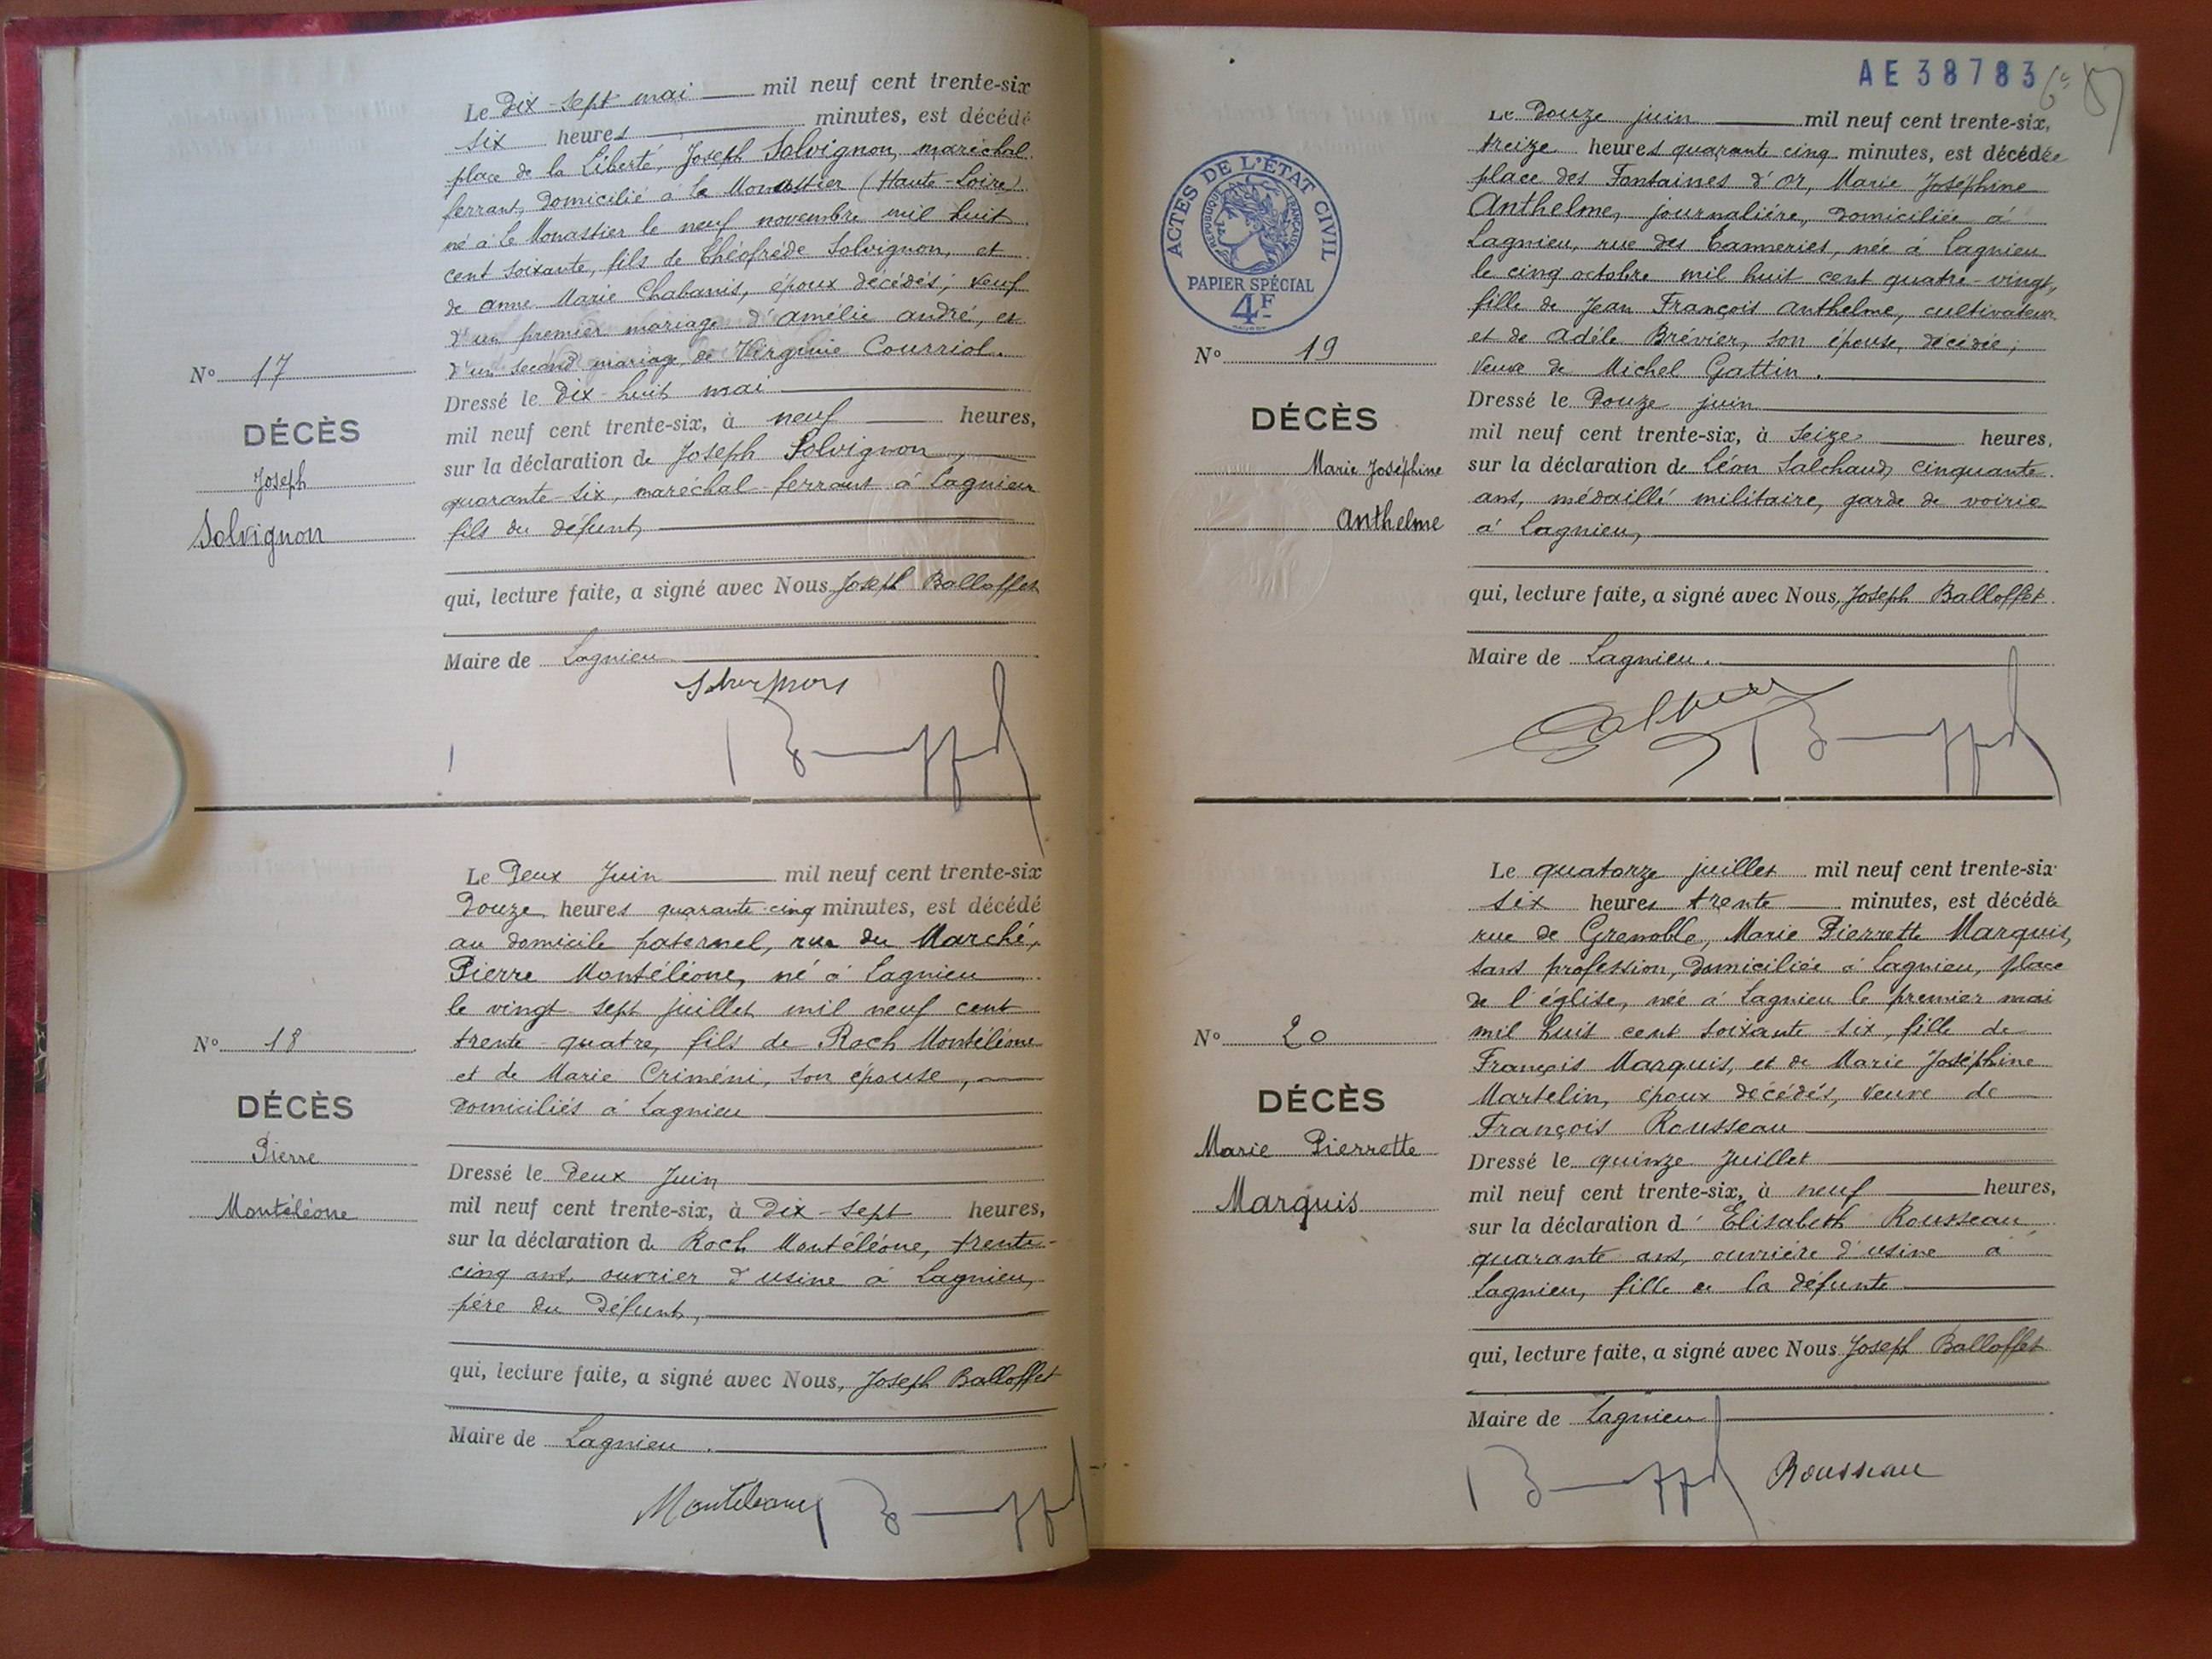 Le Dix-sept mai mil neuf cent trente-six
six heures minutes, est décédé
place de la Liberté, Joseph Solvignon, maréchal
ferrant, domicilié à le Monastier (Haute-Loire)
né à le Monastier le neuf novembre mil huit
cent soixante, fils de Théofrède Solvignon, et
de Anne Marie Chabanis, époux décédés, veuf
d'un premier mariage d'Amélie André, et
d'un second mariage de Virginie Courriol.
N° 17
DÉCÈS
Joseph
Solvignon
Dressé le Dix-huit mai
mil neuf cent trente-six, à neuf heures,
sur la déclaration de Joseph Solvignon,
quarante-six, maréchal-ferrant à Lagnieu
fils du défunt,
qui, lecture faite, a signé avec Nous Joseph Balloffet
Maire de Lagnieu
Le Deux Juin mil neuf cent trente-six
Douze heures quarante-cinq minutes, est décédé
au domicile paternel, rue du Marché,
Pierre Montéléone, né à Lagnieu
le vingt sept juillet mil neuf cent
trente-quatre, fils de Roch Montéléone
et de Marie Criméni, son épouse,
domiciliés à Lagnieu
N° 18
DÉCÈS
Pierre
Montéléone
Dressé le Deux Juin
mil neuf cent trente-six, à Dix-sept heures,
sur la déclaration de Roch Montéléone, trente-
cinq ans, ouvrier d'usine à Lagnieu,
père du Défunt,
qui, lecture faite, a signé avec Nous, Joseph Balloffet
Maire de Lagnieu.
AE38783
ACTES DE L'ÉTAT CIVIL
RÉPUBLIQUE FRANÇAISE
PAPIER SPÉCIAL
4F
Le Douze juin mil neuf cent trente-six,
treize heures quarante cinq minutes, est décédée
place des Fontaines d'or, Marie Joséphine
Anthelme, journalière, domiciliée à
Lagnieu, rue des Tanneries, née à Lagnieu
le cinq octobre mil huit cent quatre-vingt,
fille de Jean François Anthelme, cultivateur
et de Adèle Brévier, son épouse, décédée,
veuve de Michel Gattin.
N° 19
DÉCÈS
Marie Joséphine
Anthelme
Dressé le Douze juin
mil neuf cent trente-six, à seize heures,
sur la déclaration de Léon Salchaud, cinquante
ans, médaillé militaire, garde de voirie
à Lagnieu,
qui, lecture faite, a signé avec Nous, Joseph Balloffet
Maire de Lagnieu.
Le quatorze juillet mil neuf cent trente-six
six heures trente minutes, est décédée
rue de Grenoble, Marie Pierrette Marquis,
sans profession, domiciliée à Lagnieu, place
de l'église, née à Lagnieu le premier mai
mil huit cent soixante-six, fille de
François Marquis, et de Marie Joséphine
Martelin, époux décédés, veuve de
François Rousseau
N° 20
DÉCÈS
Marie Pierrette
Marquis
Dressé le quinze Juillet
mil neuf cent trente-six, à neuf heures,
sur la déclaration d'Elisabeth Rousseau
quarante ans, ouvrière d'usine à
Lagnieu, fille de la défunte
qui, lecture faite, a signé avec Nous Joseph Balloffet
Maire de Lagnieu
Rousseau